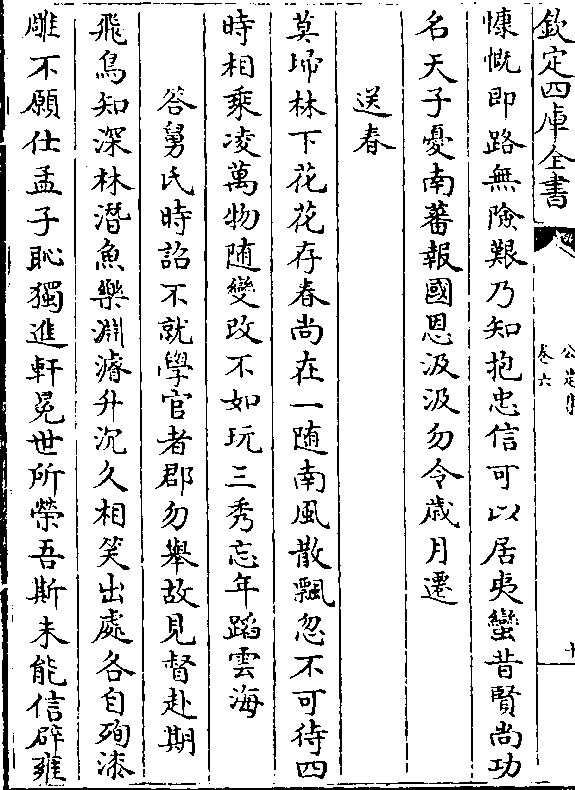 欽定四庫全書
公是集
卷六
十
慷慨即路無險艱乃知抱忠信可以居夷蠻昔賢尚功
名天子憂南蕃報國恩汲汲勿令歳月遷
送春
莫埽林下花花存春尚在一随南風散飄忽不可待四
時相乘凌萬物随變改不如玩三秀忘年蹈雲海
答舅氏時詔不就學官者郡勿舉故見督赴期
飛鳥知深林潛魚樂淵㴑升沉久相笑出處各自殉漆
雕不願仕孟子恥獨進軒冕世所榮吾斯未能信辟雍